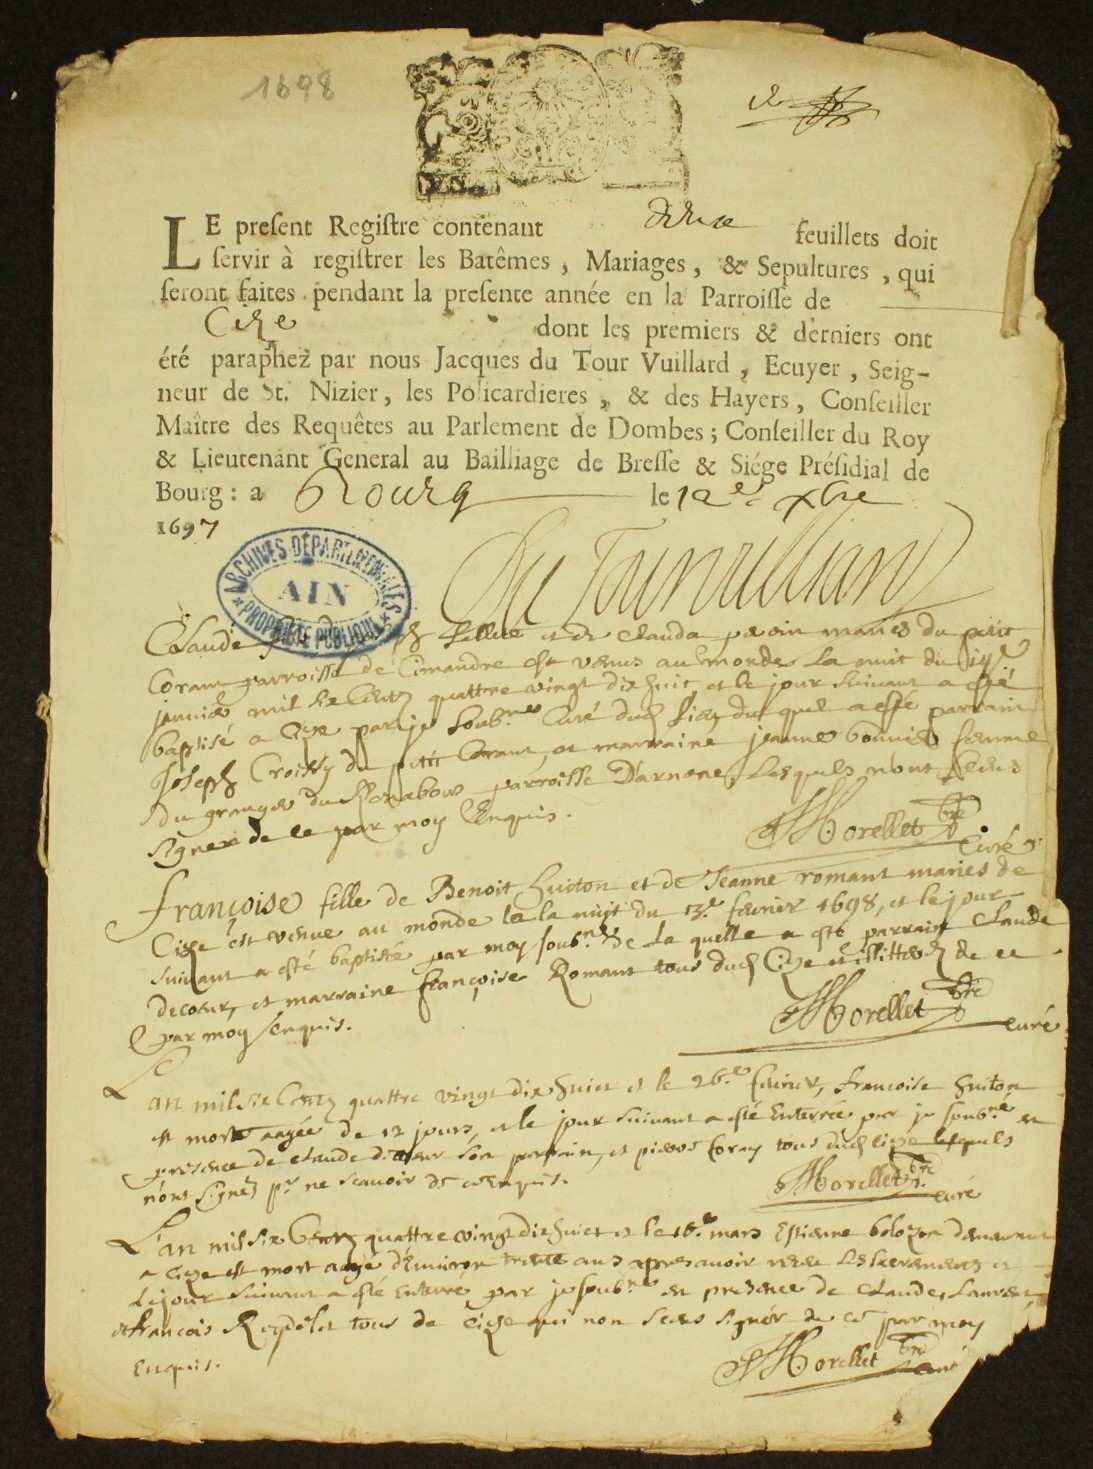 1698
LE present Registre contenant douze feuillets doit
servir à registrer les Batêmes, Mariages, & Sepultures, qui
seront faites pendant la presente année en la Parroisse de
Cize dont les premiers & derniers ont
été paraphez par nous Jacques du Tour Vuillard, Ecuyer, Seig-
neur de St. Nizier, les Policardieres, & des Hayers, Conseiller
Maître des Requêtes au Parlement de Dombes; Conseiller du Roy
& Lieutenant General au Bailliage de Bresse & Siége Présidial de
Bourg: a Bourg le 12e xbre
1697
Du Tour Vuillard
ARCHIVES DÉPARTEMENTALES
AIN
PROPRIÉTÉ PUBLIQUE
Claude et de Clauda maries du petit
Corant parroisse de Simandre est venus au monde la nuit du
janvier mil six Cents quattre vingt dix huit et le jour suivant a esté
baptisé a Cize par je soubné Curé dud lieu duquel a esté parrain
Joseph du petit Corant, et marraine jeanne femme
du granger du parroisse D'arnone, Lesquels nont sceus
signer de ce par moy Enquis.
Morellet pbre
Curé
françoise fille de Benoit huiton et de Jeanne romant maries de
Cize est venue au monde la nuit du 13e fevrier 1698, et le jour
suivant a esté baptisée par moy soubné De la quelle a esté parrain Claude
decoeur, et marraine françoise Romant tous dud Cize et illitterez de ce
par moy Enquis.
Morellet pbre
curé
L'an mil six Cents quattre vingt dix huict et le 26e fevrier, francoise huiton
est morte aagée de 12 jours, et le jour suivant a esté Enterrée par je soubné en
presence de Claude decoeur son parrain, et pierre tous dud cize lesquels
nont signez pr ne scavoir de ce Enquis.
Morellet pbre
curé
L'an mil six Cents quattre vingt dix huict et le 16e mars Estienne demeurant
a Cize est mort aagé d'Environ trente ans apres avoir receu Les sacrements et
Le jour suivant a esté Enterré par je soubné en presence de Claude, Laurent,
et francois Reydelet tous de Cize qui non sceus signer de ce par moy
Enquis.
Morellet pbre
curé